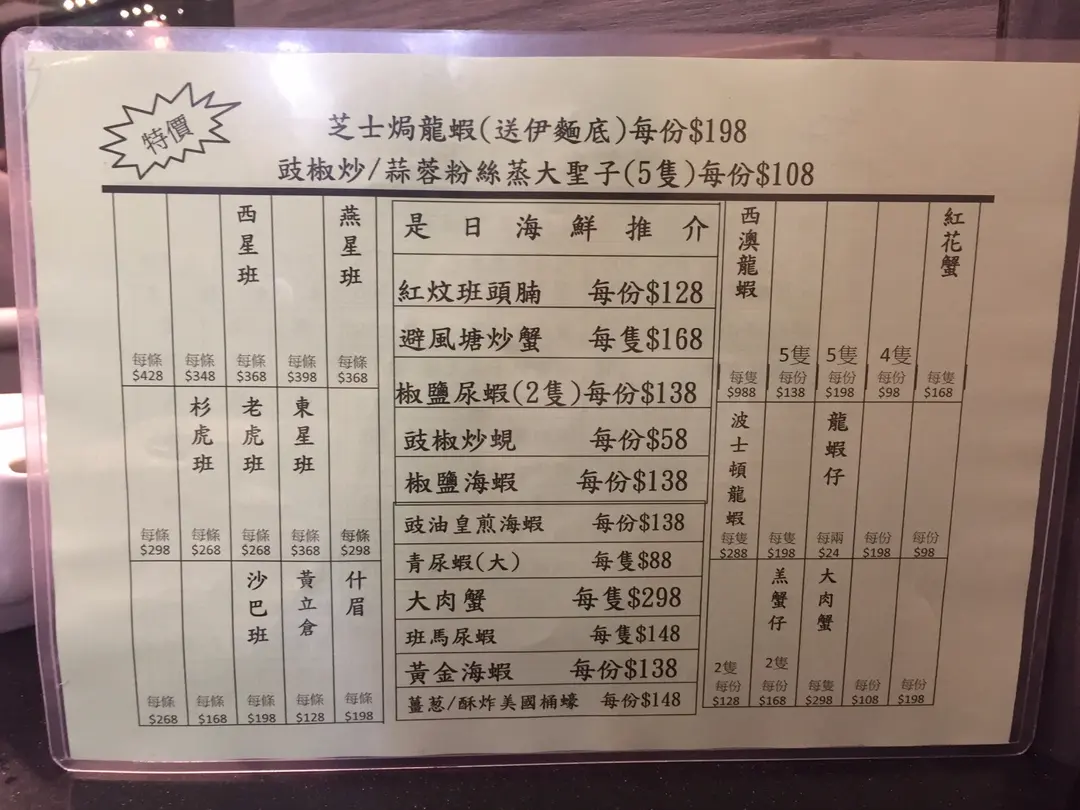 特價
芝士焗龍蝦(送伊麵底)每份$198
豉椒炒/蒜蓉粉絲蒸大聖子(5隻)每份$108
每條 $428
每條 $348
西星班 每條 $368
每條 $398
燕星班 每條 $368
每條 $298
杉虎班 每條 $268
老虎班 每條 $268
東星班 每條 $368
每條 $298
每條 $268
每條 $168
沙巴班 每條 $198
黃立倉 每條 $128
什眉 每條 $198
是日海鮮推介
紅炆班頭腩 每份$128
避風塘炒蟹 每隻$168
椒鹽尿蝦(2隻)每份$138
豉椒炒蜆 每份$58
椒鹽海蝦 每份$138
豉油皇煎海蝦 每份$138
青尿蝦(大) 每隻$88
大肉蟹 每隻$298
班馬尿蝦 每隻$148
黃金海蝦 每份$138
薑葱/酥炸美國桶蠔 每份$148
西澳龍蝦 每隻 $988
5隻 每份 $138
5隻 每份 $198
4隻 每份 $98
紅花蟹 每隻 $168
波士頓龍蝦 每隻 $288
每隻 $198
龍蝦仔 每兩 $24
每份 $198
每份 $98
2隻 每份 $128
羔蟹仔 2隻 每份 $168
大肉蟹 每隻 $298
每份 $108
每份 $198